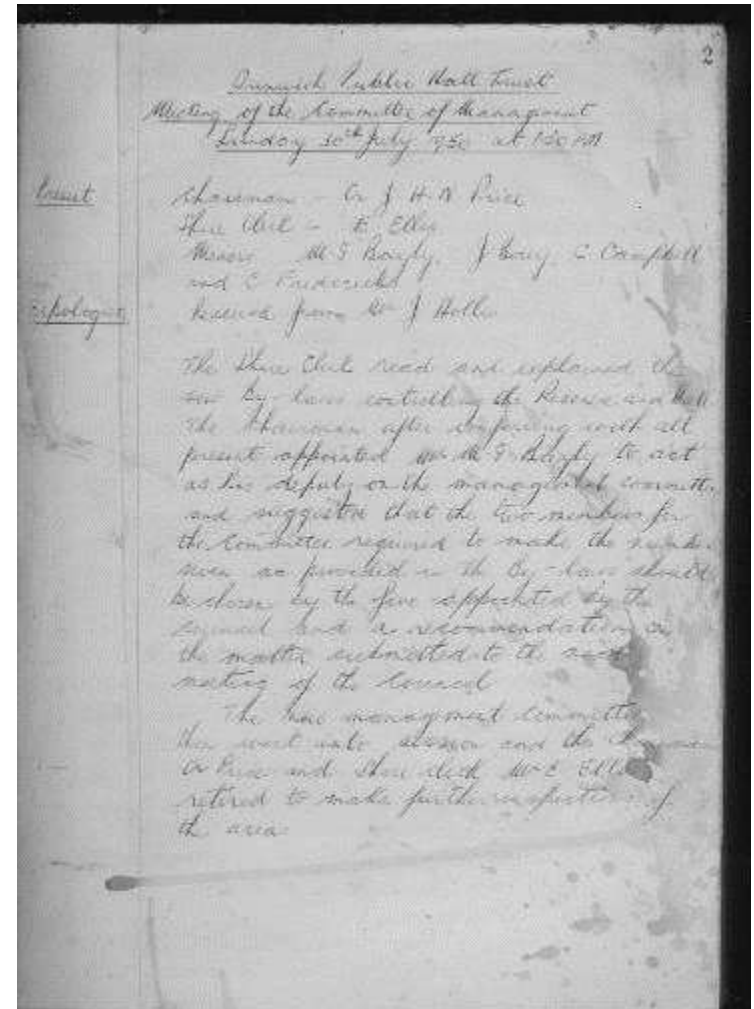 2
Public Hall Trust
Meeting of the Committee of Management
Sunday 30th July 1950 at 1.30 PM
Present
Chairman - Cr J H N Price
Shire Clerk - E Ellis
Messrs M G Bayly, J C Campbell
and C Fredericks
Apologies
Received from Mr J Hollis
The Shire Clerk read and explained the
new By-laws controlling the Reserve and Hall
The Chairman after conferring with all
present appointed Mr M G Bayly to act
as his deputy on the management committee
and suggested that the two members for
the Committee required to make the number
seven as provided in the By-laws should
be chosen by the five appointed by the
Council and a recommendation on
the matter submitted to the next
meeting of the Council
The new managment Committee
then went into session and the Chairman
Cr Price and Shire clerk Mr E Ellis
retired to make further inspections of
the area